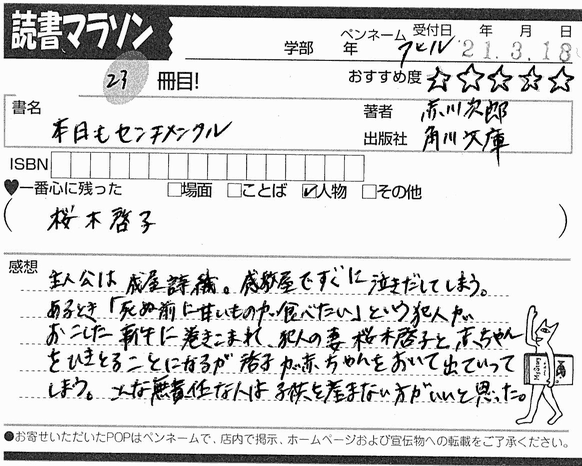 読書マラソン
学部 年 ペンネーム アヒル 受付日 年 月 日
21.3.18
23 冊目! おすすめ度 ☆☆☆☆☆
書名 本日もセンチメンタル
著者 赤川次郎
出版社 角川文庫
ISBN
♥一番心に残った □場面 □ことば ☑人物 □その他
( 桜木啓子 )
感想
主人公は 成屋詩織。感激屋ですぐに泣きだしてしまう。
あるとき「死ぬ前に甘いものが食べたい」という犯人が
おこした事件に巻きこまれ、犯人の妻 桜木啓子と赤ちゃん
をひきとることになるが 啓子が赤ちゃんをおいて出ていって
しまう。 な無責任な人は子供を産まない方がいいと思った。
●お寄せいただいたPOPはペンネームで、店内で掲示、ホームページおよび宣伝物への転載をご了承ください。